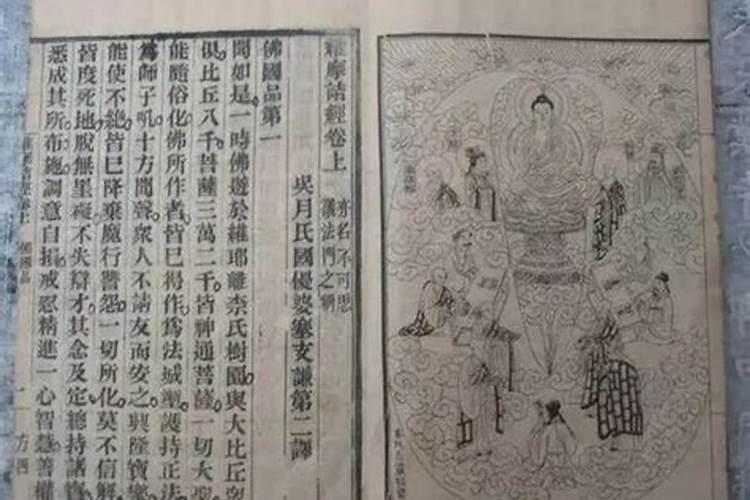 維摩詰經卷上
亦名不可思
議法門之稱
吳月氏國優婆塞支謙第二譯
佛國品第一
聞如是一時佛遊於維耶離柰氏樹園與大比丘眾
俱比丘八千菩薩三萬二千皆神通菩薩一切大聖
能隨俗化佛所作者皆已得作為法城塹護持正法
為師子吼十方聞聲眾人不請友而安之興隆寶
能使不絕皆已降棄魔行讐怨一切所化莫不信解
皆度死地脫無罣礙不失辯才其念及定總持諸寶
悉成其所布施調意自損戒忍精進一心智慧善權